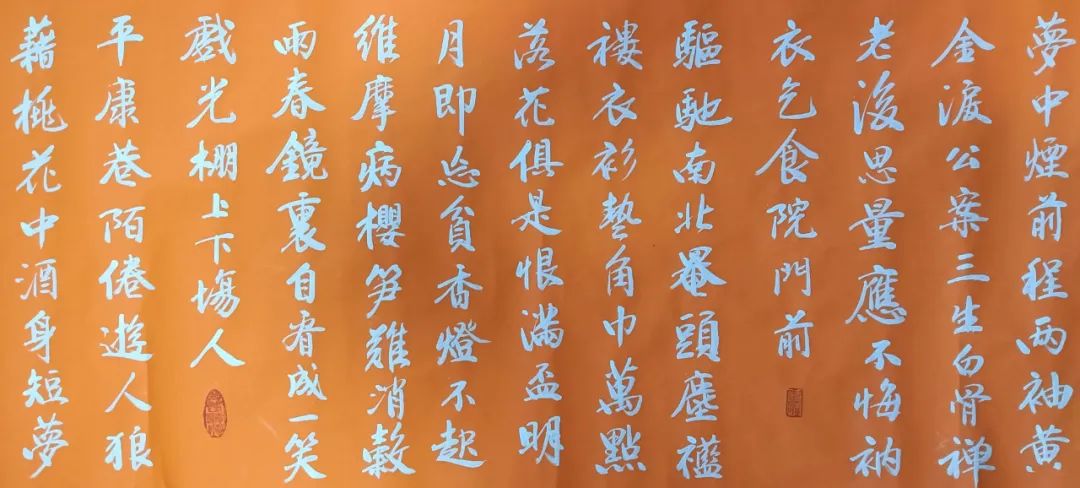 夢中煙前程两袖黄
金淚公案三生白骨禅
老後思量應不悔衲
衣乞食院門前
驅馳南北罨頭塵襤
褸衣衫藝角巾萬點
落花俱是恨滿盃明
月即忘貧香燈不起
維摩病櫻笋難消穀
雨春鏡裏自看成一笑
戲光棚上下場人
平康巷陌倦遊人狼
藉桃花中酒身短夢